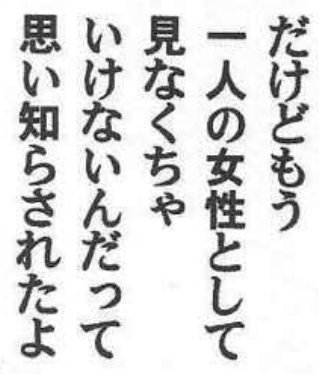 だけどもう
一人の女性として
見なくちゃ
いけないんだって
思い知らされたよ